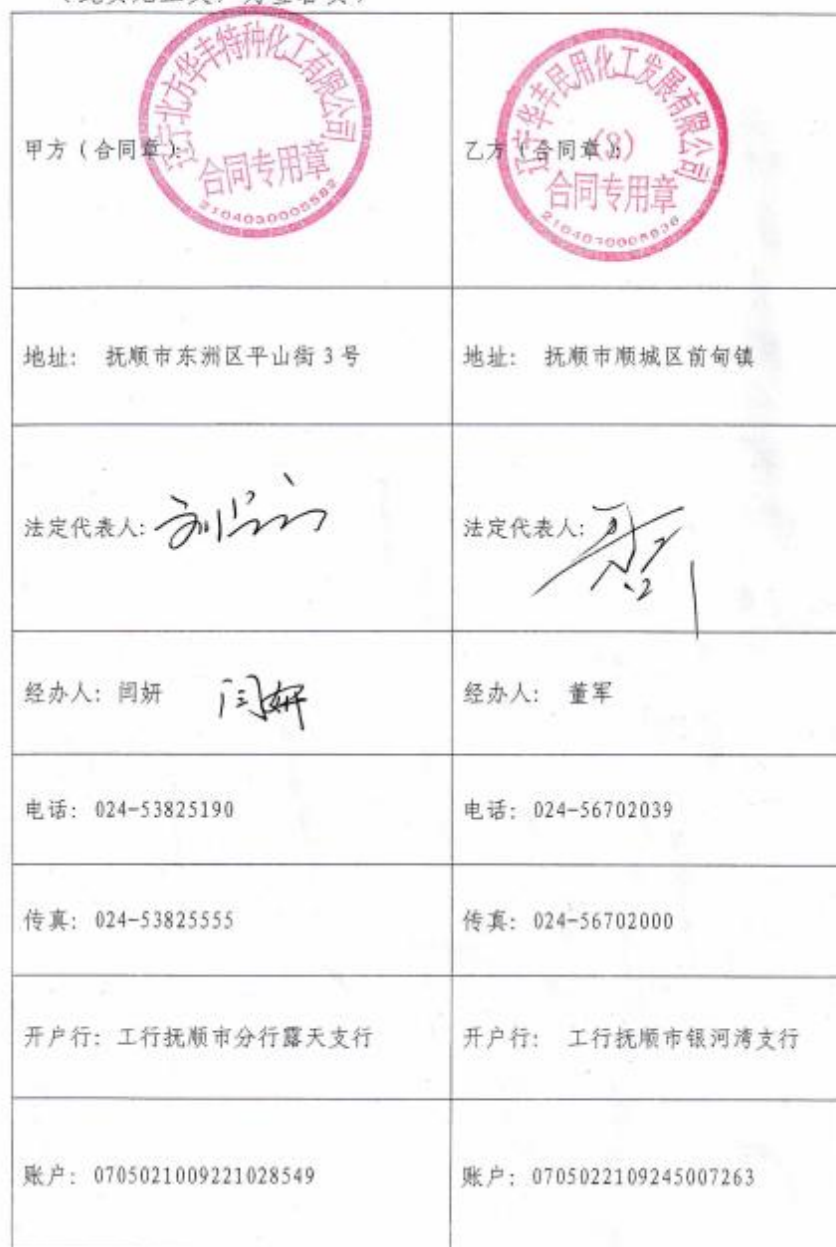 （此页无正文，为签署页）
辽宁北方华丰特种化工有限公司
合同专用章
2104030005582
甲方（合同章）：
辽宁华丰民用化工发展有限公司
(8)
合同专用章
乙方（合同章）：
地址： 抚顺市东洲区平山街 3 号
地址： 抚顺市顺城区前甸镇
法定代表人：
法定代表人：
经办人：闫妍 闫妍
经办人： 董军
电话：024-53825190
电话：024-56702039
传真：024-53825555
传真：024-56702000
开户行：工行抚顺市分行露天支行
开户行： 工行抚顺市银河湾支行
账户：0705021009221028549
账户：0705022109245007263